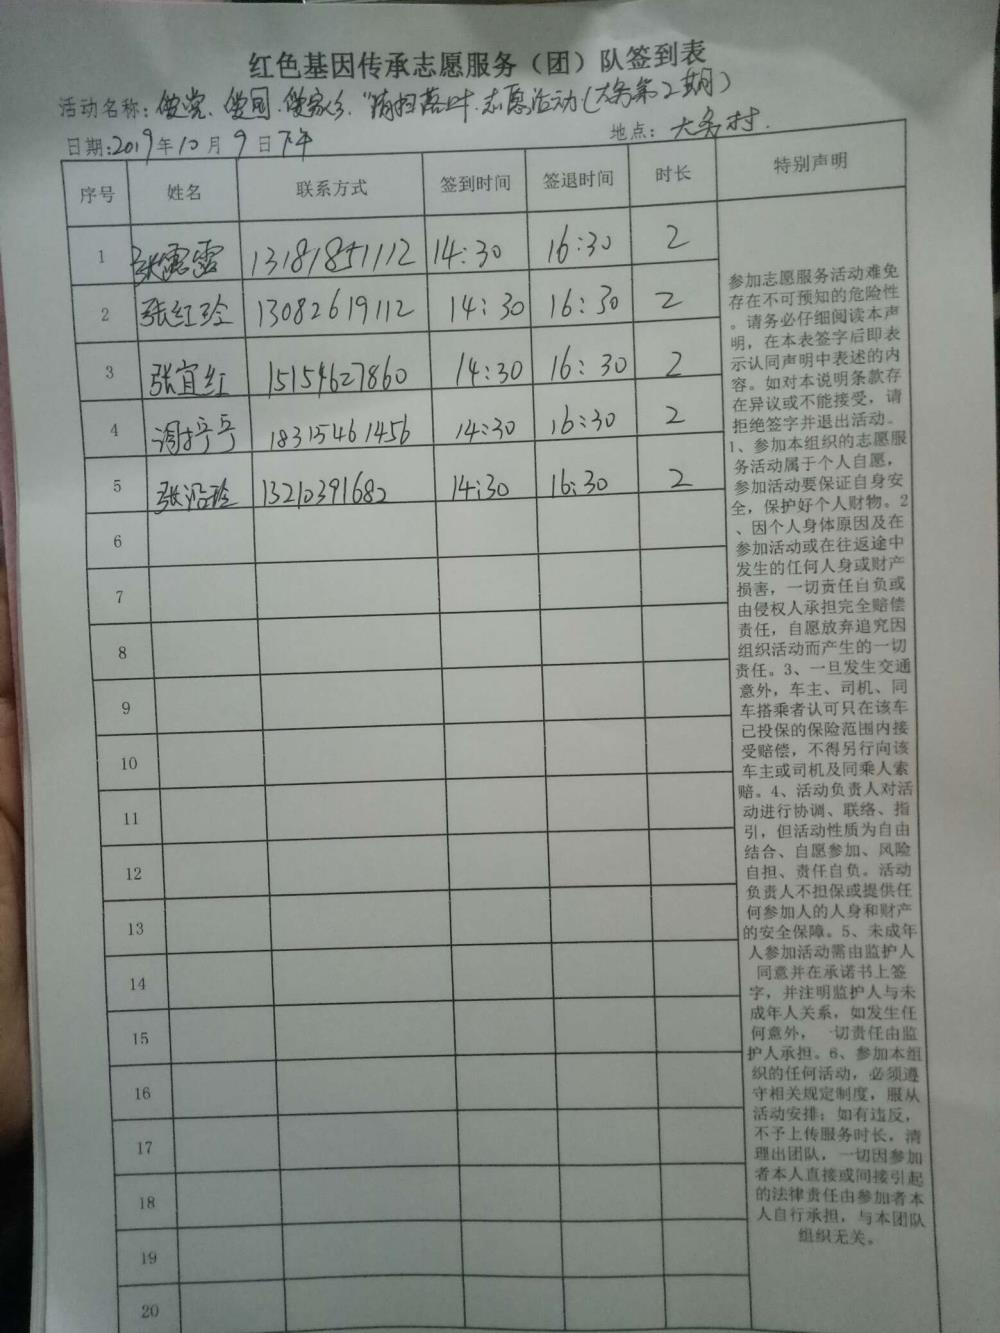 红色基因传承志愿服务（团）队签到表
活动名称：爱党、爱国、爱家乡，"清扫落叶"志愿活动（大务第2期）
日期：2019年10月9日下午 地点：大务村.
序号 姓名 联系方式 签到时间 签退时间 时长 特别声明
1 张露露 13181851112 14:30 16:30 2
2 张红玲 13082619112 14:30 16:30 2
3 张宜红 15154627860 14:30 16:30 2
4 18315461456 14:30 16:30 2
5 张沿玲 13210391682 14:30 16:30 2
6
7
8
9
10
11
12
13
14
15
16
17
18
19
20
参加志愿服务活动难免
存在不可预知的危险性
。请务必仔细阅读本声
明，在本表签字后即表
示认同声明中表述的内
容。如对本说明条款存
在异议或不能接受，请
拒绝签字并退出活动。
1、参加本组织的志愿服
务活动属于个人自愿，
参加活动要保证自身安
全，保护好个人财物。2
、因个人身体原因及在
参加活动或在往返途中
发生的任何人身或财产
损害，一切责任自负或
由侵权人承担完全赔偿
责任，自愿放弃追究因
组织活动而产生的一切
责任。3、一旦发生交通
意外，车主、司机、同
车搭乘者认可只在该车
已投保的保险范围内接
受赔偿，不得另行向该
车主或司机及同乘人索
赔。4、活动负责人对活
动进行协调、联络、指
引，但活动性质为自由
结合、自愿参加、风险
自担、责任自负。活动
负责人不担保或提供任
何参加人的人身和财产
的安全保障。5、未成年
人参加活动需由监护人
同意并在承诺书上签
字，并注明监护人与未
成年人关系，如发生任
何意外，一切责任由监
护人承担。6、参加本组
织的任何活动，必须遵
守相关规定制度，服从
活动安排；如有违反，
不予上传服务时长，清
理出团队，一切因参加
者本人直接或间接引起
的法律责任由参加者本
人自行承担，与本团队
组织无关。